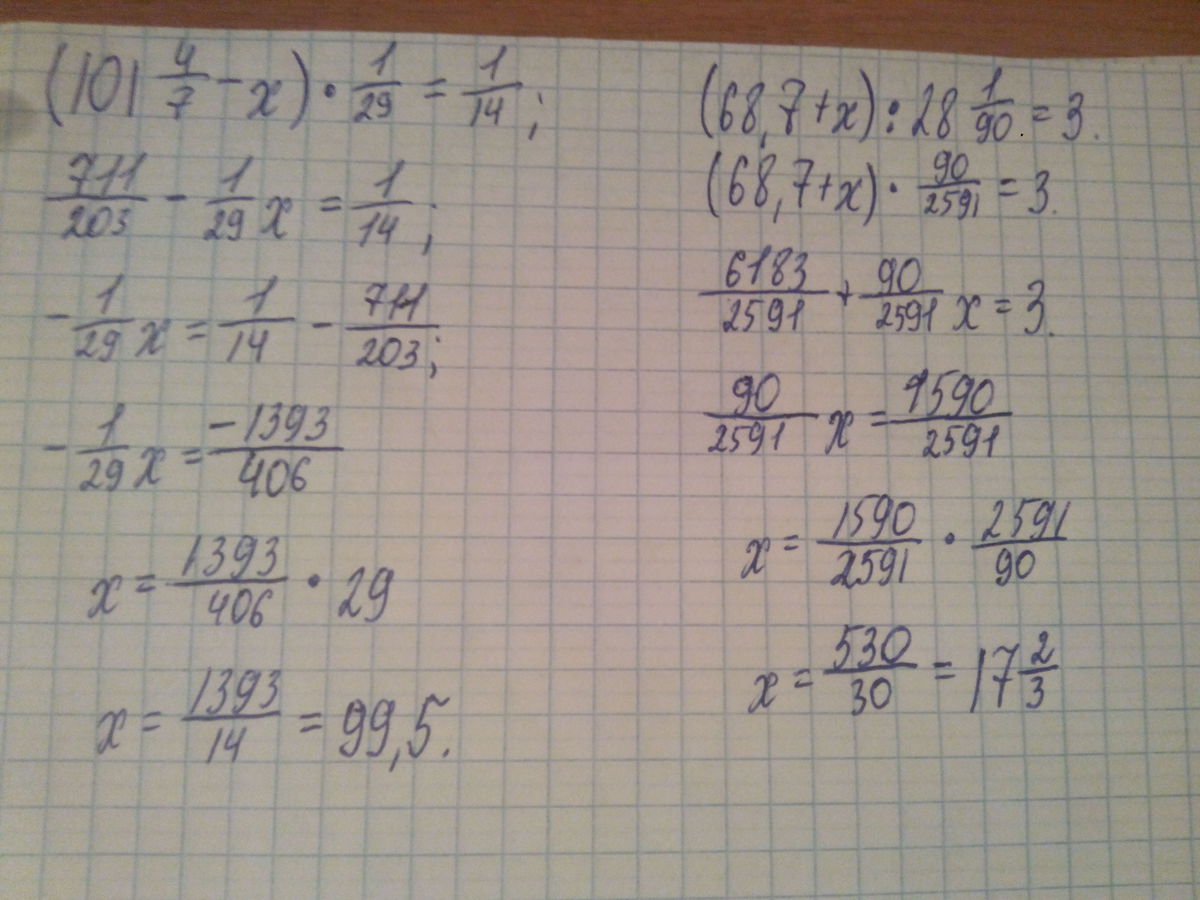 (101 4/7 - x) · 1/29 = 1/14;
711/203 - 1/29 x = 1/14;
- 1/29 x = 1/14 - 711/203;
- 1/29 x = -1393/406
x = 1393/406 · 29
x = 1393/14 = 99,5.
(68,7+x) : 28 1/90 = 3.
(68,7+x) · 90/2591 = 3.
6183/2591 + 90/2591 x = 3.
90/2591 x = 1590/2591
x = 1590/2591 · 2591/90
x = 530/30 = 17 2/3